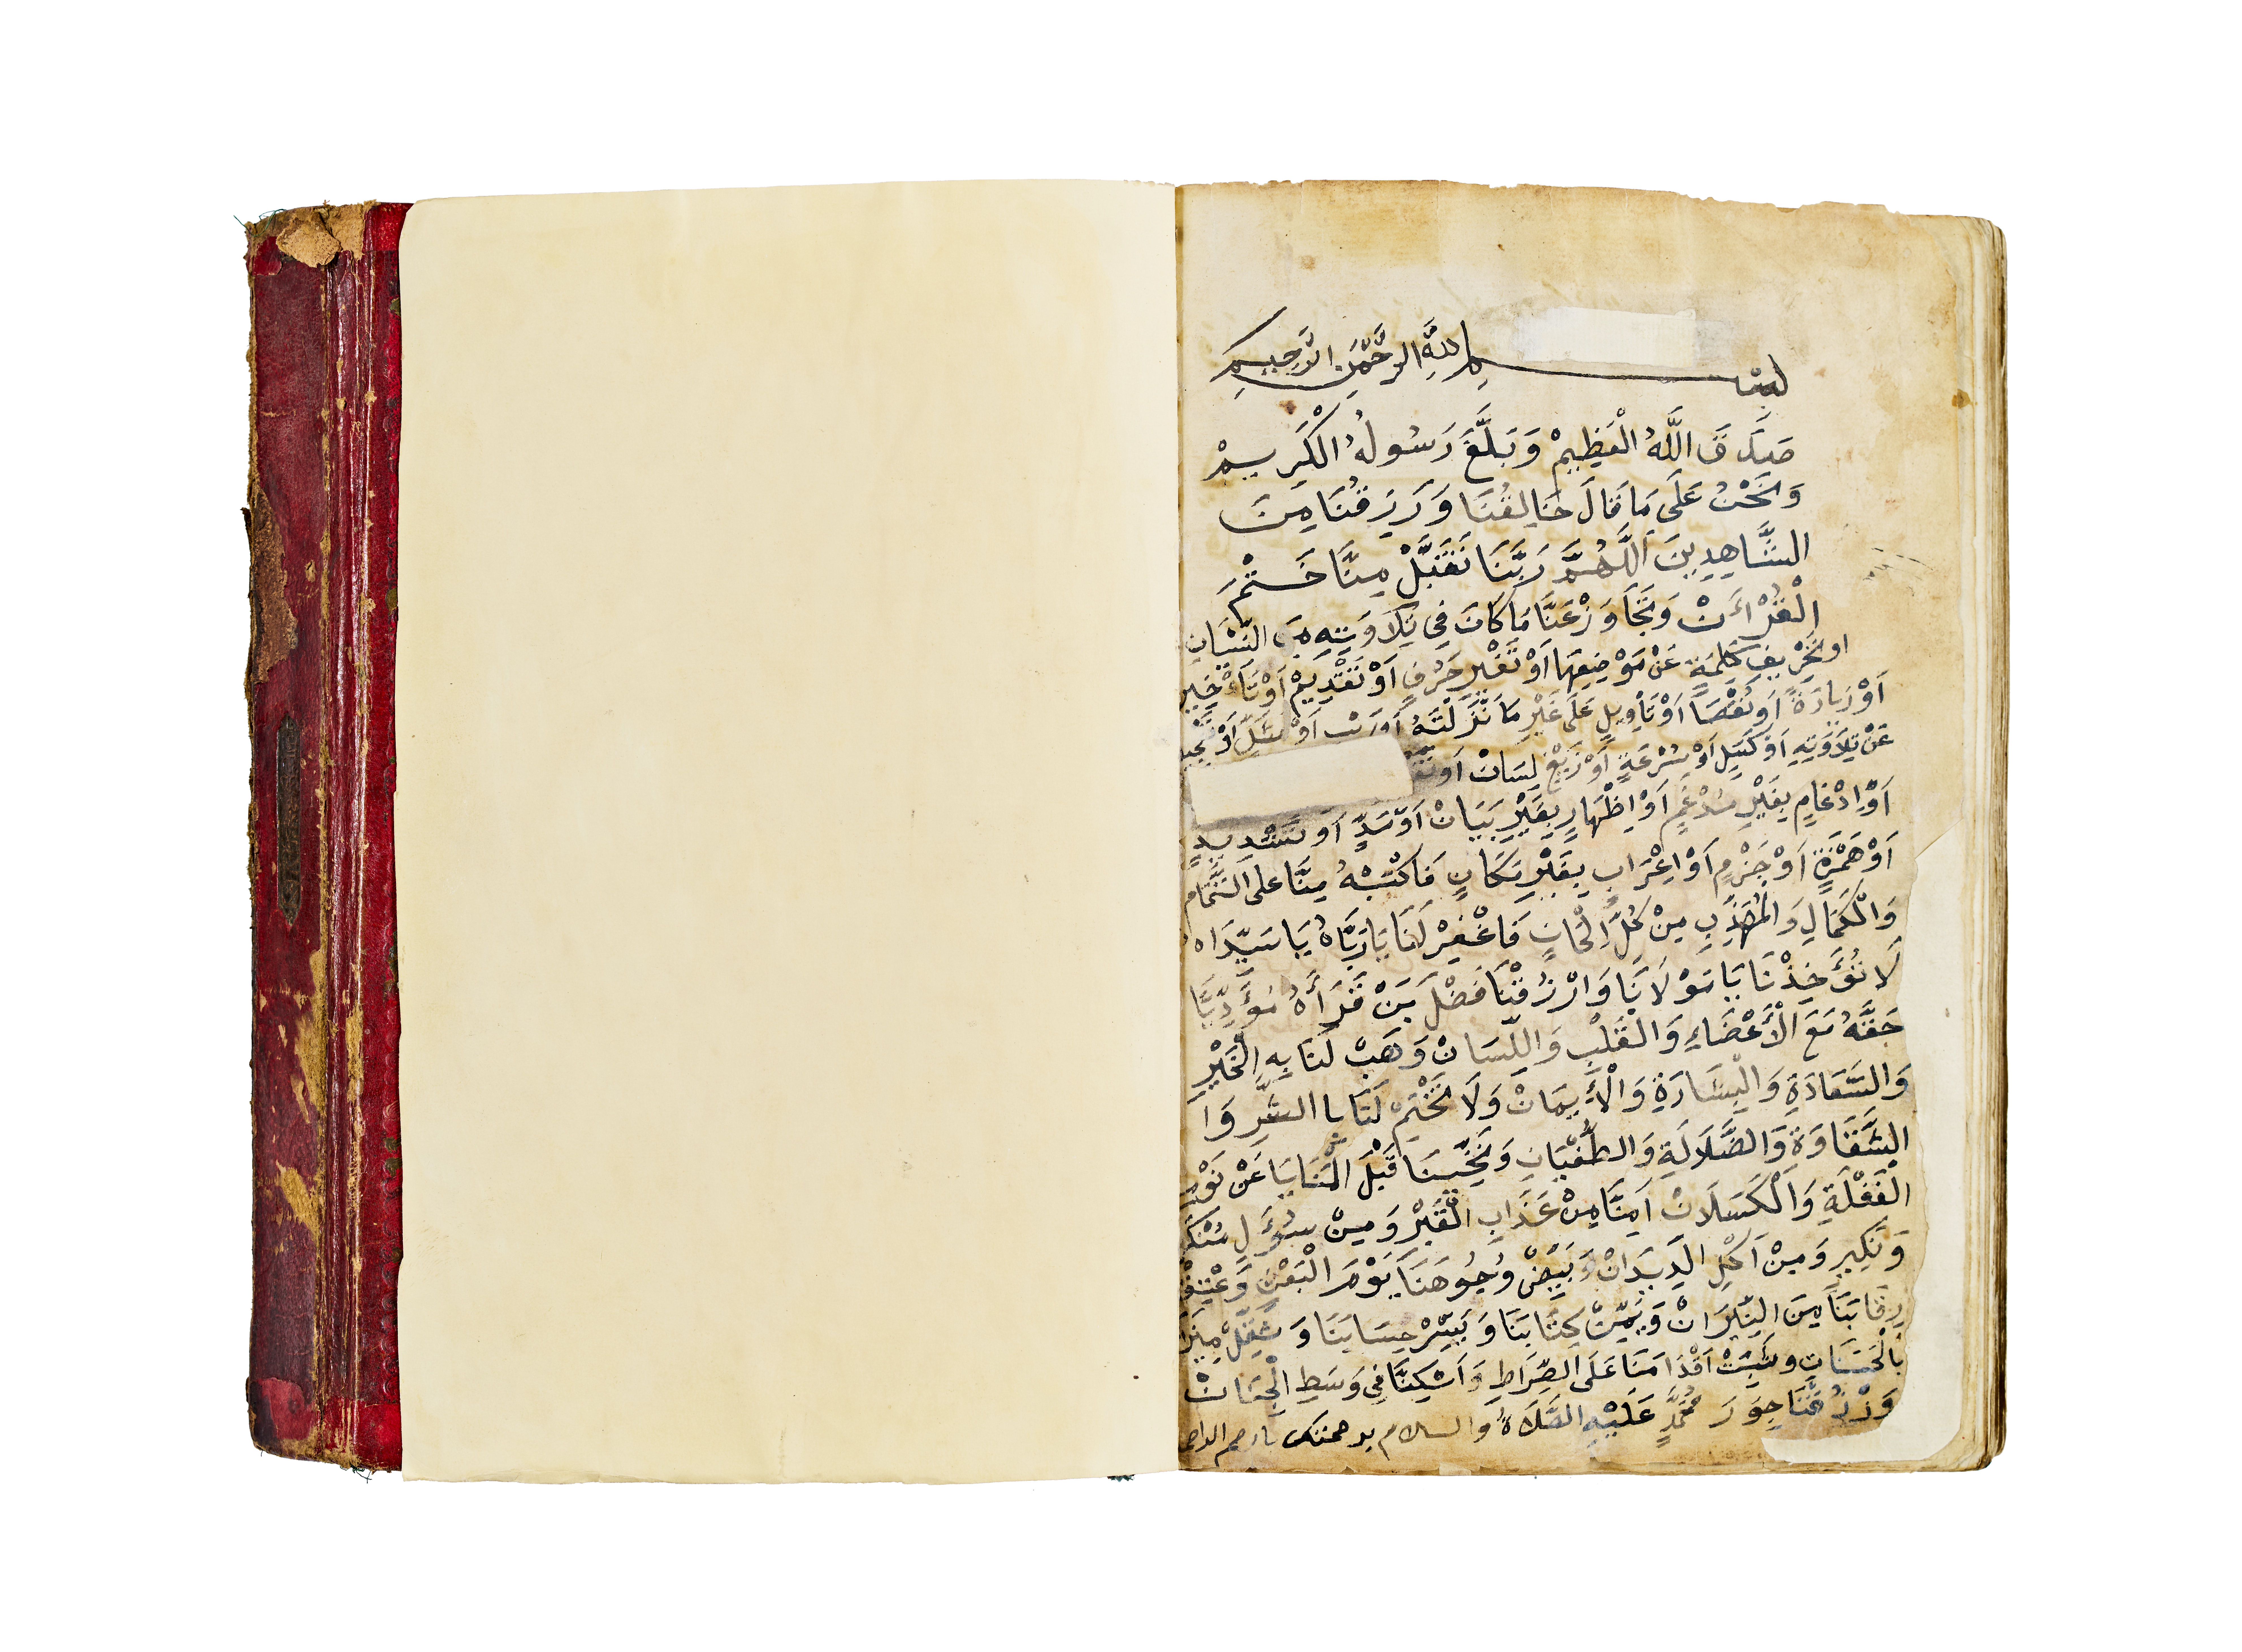 بِسْمِ اللَّهِ الرَّحْمٰنِ الرَّحِيمِ
صَدَقَ اللَّهُ الْعَظِيمْ وَبَلَّغَ رَسُولُهُ الْكَرِيمْ
وَنَحْنُ عَلَى مَا قَالَ خَالِقُنَا وَرَزِقُنَا مِنَ
الشَّاهِدِينَ اَللَّهُمَّ رَبَّنَا تَقَبَّلْ مِنَّا خَتْمَ
الْقُرْاٰنْ وَتَجَاوَزْ عَنَّا مَا كَانَ فِي تِلَاوَتِهِ مِنَ النِّسْيَانِ
او تَحْرِيفِ كَلِمَةٍ عَنْ مَوْضِعِهَا اَوْ تَغْيِرِ حَرْفٍ اَوْ تَقْدِيمْ اَوْ تَاْخِيرٍ
اَوْ زِيَادَةً اَوْ نُقْصَا اَوْ تَاْوِيلٍ عَلَى غَيْرِ مَا نْزَلْتَهُ اَوْ
عَنْ تِلَاوَتِهِ اَوْ كَسَلٍ اَوْ سُرْعَةٍ اَوْ زَيْغِ لِسَانْ اَوْ
اَوْ اِدْغَامٍ بِغَيْرِ مُدْغَمٍ اَوْ اِظْهَارٍ بِغَيْرِ بَيَانْ اَوْ مَدٍّ اَو تَشْدِيدٍ
اَوْ هَمْزَةٍ اَوْ جَزْمٍ اَوْ اِعْرَابٍ بِغَيْرِ مَكَانٍ فَاكْتُبْهُ مِنَّا على التَّمَامِ
وَالْكَمَالِ وَالْمُهَذَّبِ مِنْ كُلِّ اِلْحَانٍ فَاغْفِرْ لَنَا يَا رَبَّاهُ يَا سَيِّدَاه
لَا تُؤَخِذْنَا يَا مَوْلَانَا وَارْزُقْنَا فَضْلَ مَنْ قَرَأَهُ مُؤَدِّيًا
حَقَّهُ مَعَ الْأَعْضَاءِ وَالْقَلْبِ وَاللِّسَانْ وَهَبْ لَنَا بِهِ الْخَيْرِ
وَالسَّعَادَةِ وَالْبِشَارَةِ وَالْأِيمَانْ وَلَا تَخْتِمْ لَنَا بِا الشَّرِّ وَا
الشَّقَاوَةِ وَالضَّلَالَةِ وَالطُّغْيَانِ وَنَجِّنَا قَبْلَ الْمَنَايَا عَنْ نَوْمِ
الْغَفْلَةِ وَالْكَسَلَانْ اَمِنَّا مِنْ عَذَابِ الْقَبْرْ وَمِنْ سُؤَلِ مُنْكَرٍ
وَنَكِيرٍ وَمِنْ اَكْلِ الدِّيدَانْ وَبَيِّضْ وُجُوهَنَا يَوْمَ الْبَعْثِ وَعْتِقْ
رِقَابَنَا مِنَ النِّيرَانْ وَيَمِّنْ كِتَابَنَا وَيَسِّرْ حِسَابَنَا وَثَقِّلْ مِيزَا
بِالْحَسَنَاتِ وَثَبِّتْ اَقْدَامَنَا عَلَى الصِّرَاطِ وَاَسْكِنَّا فِي وَسَطِ الْجِنَانْ
وَرْزُقْنَا جِوَرَ مُحَمَّدٍ عَلَيْهِ الصَّلَاةُ والسلام برحمتك